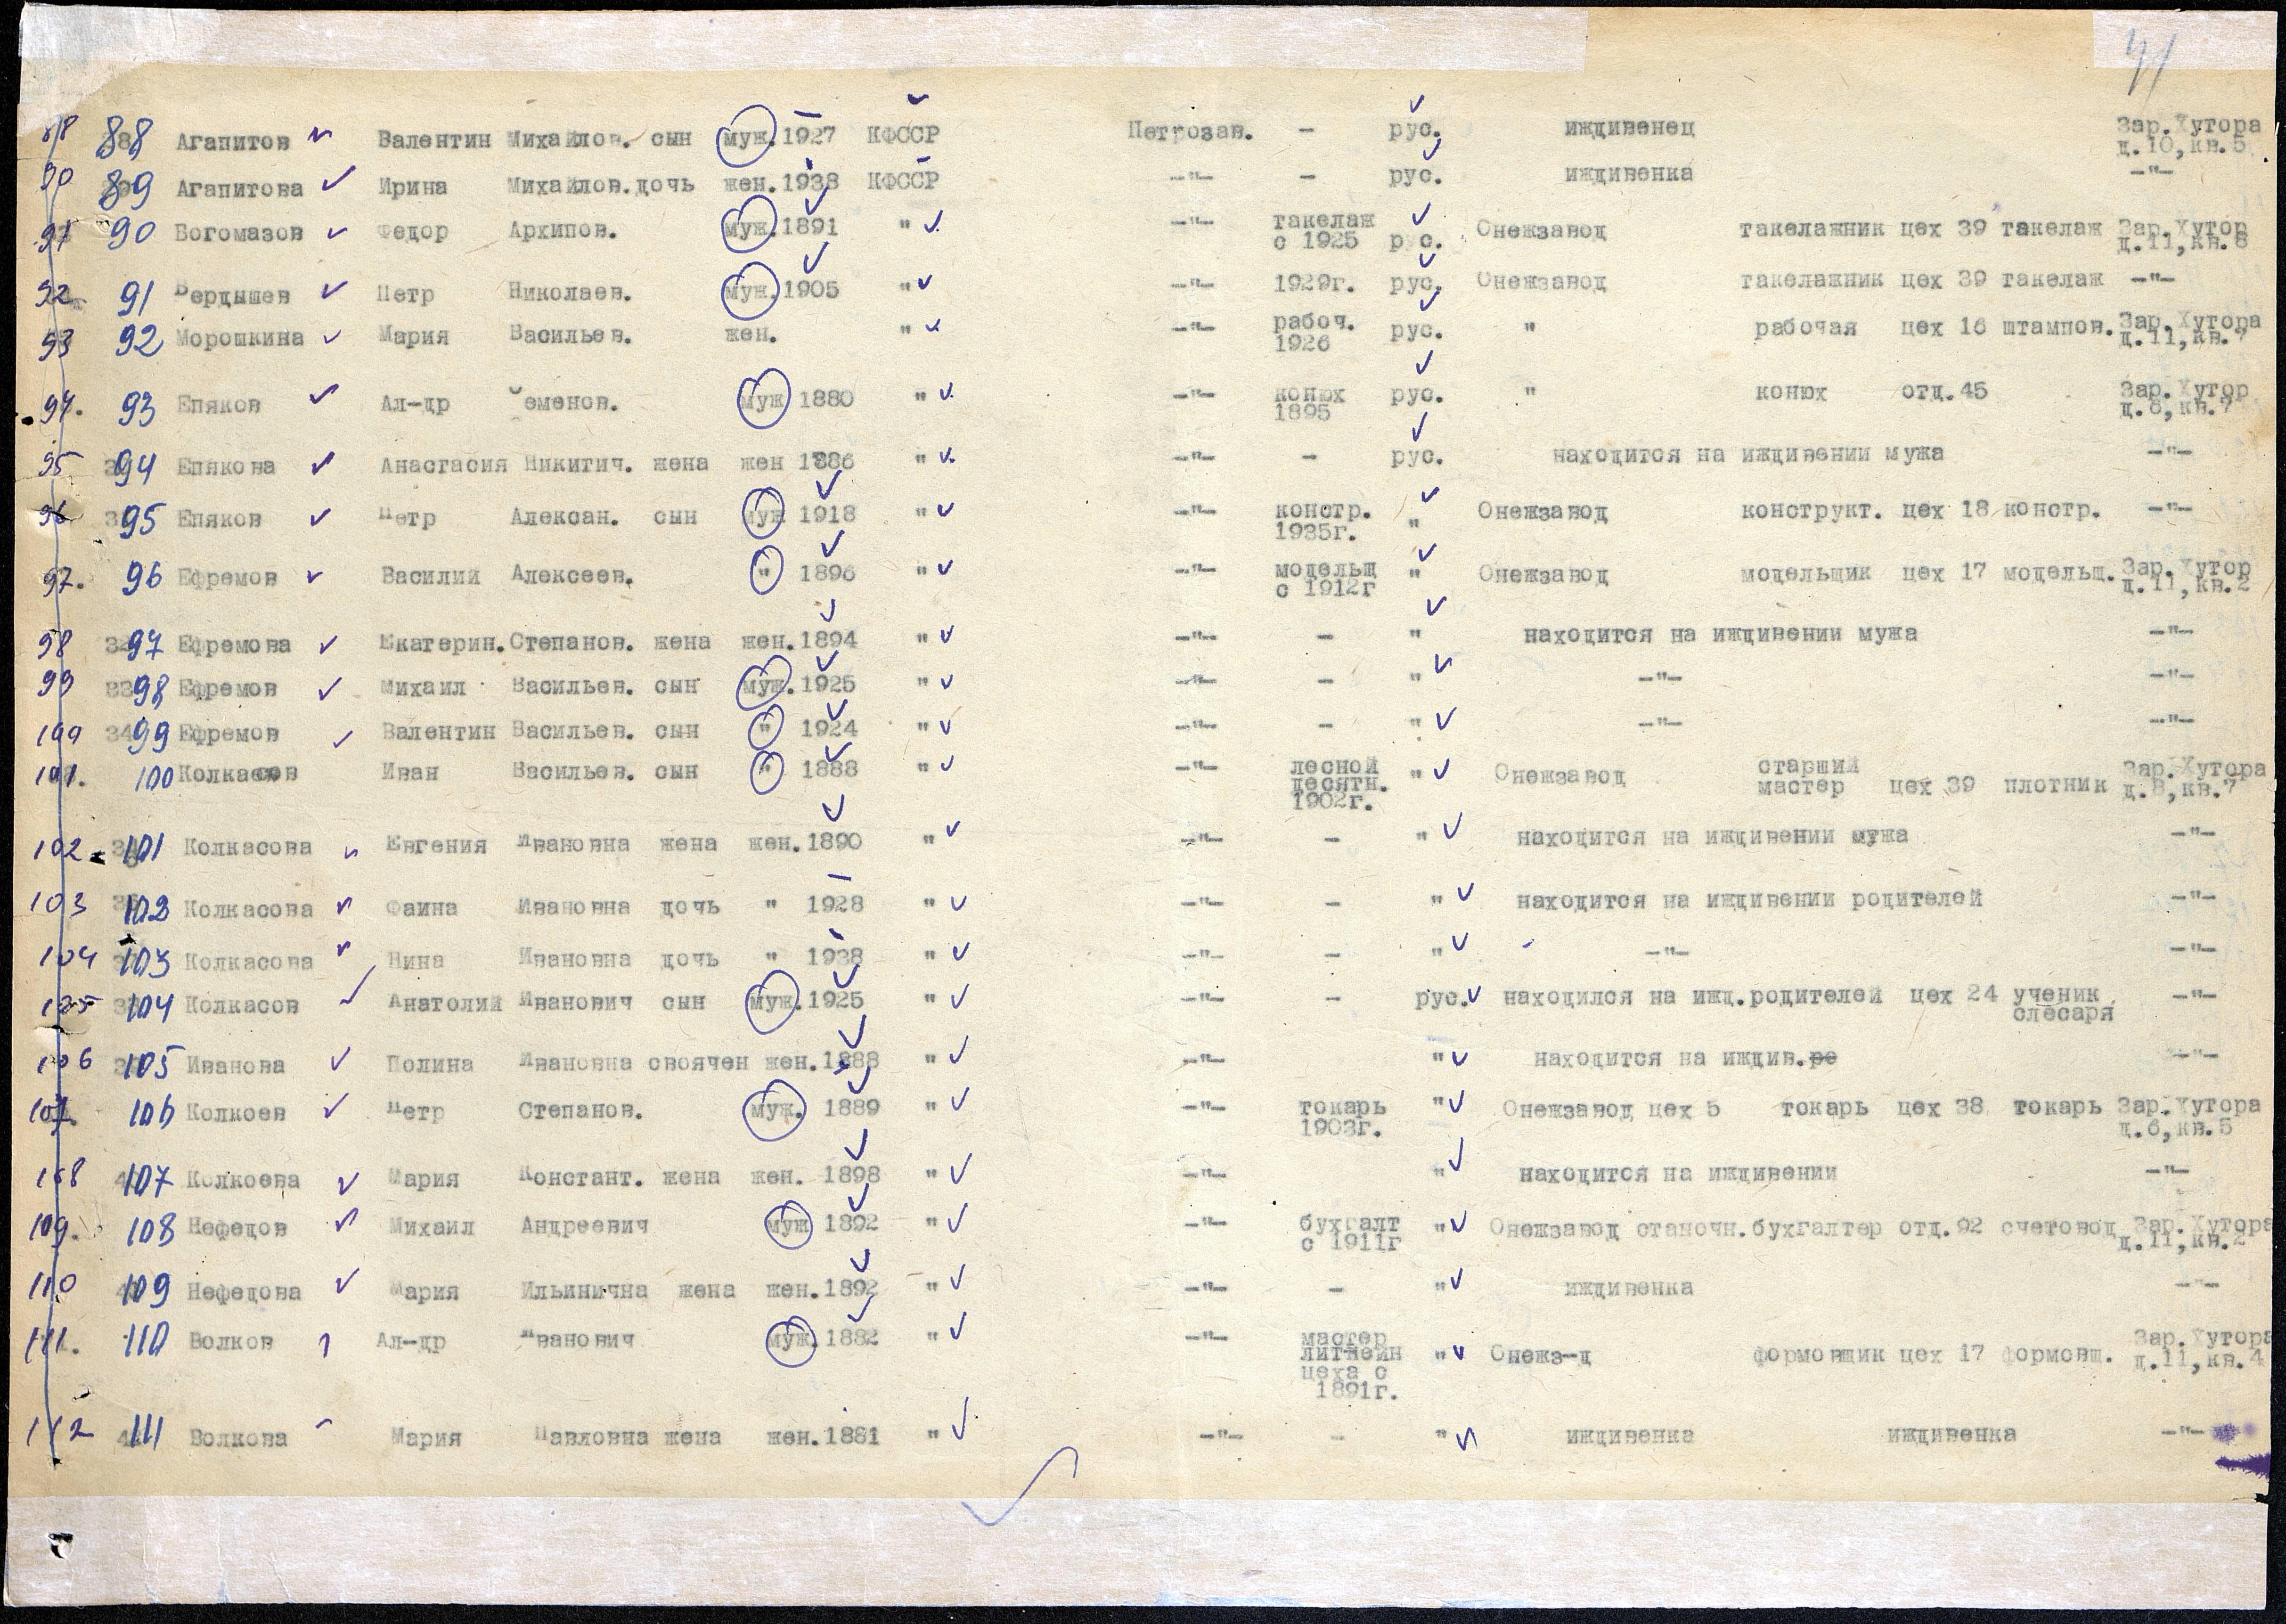 41
88 88 Агапитов Валентин Михайлов. сын муж. 1927 КФССР Петрозав. - рус. иждивенец Зар.Хутора д.10,кв.5
90 89 Агапитова Ирина Михайлов.дочь жен.1938 КФССР -"- - рус. иждивенка -"-
91 90 Богомазов Федор Архипов. муж.1891 " -"- такелаж с 1925 рус. Онежзавод такелажник цех 39 такелаж Зар.Хутор д.11,кв.8
92 91 Бердышев Петр Николаев. муж.1905 " -"- 1929г. рус. Онежзавод такелажник цех 39 такелаж -"-
93 92 Морошкина Мария Васильев. жен. " -"- рабоч. 1926 рус. " рабочая цех 16 штампов. Зар.Хутора д.11,кв.7
94. 93 Епяков Ал-др Семенов. муж 1880 " -"- конюх 1895 рус. " конюх отд.45 Зар.Хутор д.6,кв.7
95 94 Епякова Анастасия Никитич. жена жен 1886 " -"- - рус. находится на иждивении мужа -"-
96 95 Епяков Петр Алексан. сын муж 1918 " -"- констр. 1935г. " Онежзавод конструкт. цех 18 констр. -"-
97. 96 Ефремов Василий Алексеев. " 1896 " -"- модельщ с 1912г " Онежзавод модельщик цех 17 модельщ. Зар.Хутор д.11,кв.2
98 97 Ефремова Екатерин.Степанов. жена жен.1894 " -"- - " находится на иждивении мужа -"-
99 98 Ефремов Михаил Васильев. сын муж.1925 " -"- - " -"- -"-
100 99 Ефремов Валентин Васильев. сын " 1924 " -"- - " -"- -"-
101. 100 Колкасов Иван Васильев. сын " 1888 " -"- лесной десятн. 1902г. " Онежзавод старший мастер цех 39 плотник Зар.Хутора д.8,кв.7
102 101 Колкасова Евгения Ивановна жена жен.1890 " -"- - " находится на иждивении мужа -"-
103 102 Колкасова Фаина Ивановна дочь " 1928 " -"- - " находится на иждивении родителей -"-
104 103 Колкасова Нина Ивановна дочь " 1938 " -"- - " -"- -"-
105 104 Колкасов Анатолий Иванович сын муж.1925 " -"- - рус. находился на ижд.родителей цех 24 ученик слесаря -"-
106 105 Иванова Полина Ивановна своячен жен.1888 " -"- " находится на иждив.ро -"-
107. 106 Колкоев Петр Степанов. муж. 1889 " -"- токарь 1903г. " Онежзавод цех 5 токарь цех 38 токарь Зар.Хутора д.6,кв.5
108 107 Колкоева Мария Констант. жена жен. 1898 " -"- " находится на иждивении -"-
109. 108 Нефедов Михаил Андреевич муж 1892 " -"- бухгалт с 1911г " Онежзавод станочн.бухгалтер отд.92 счетовод Зар.Хутора д.11,кв.2
110 109 Нефедова Мария Ильинична жена жен.1892 " -"- - " иждивенка -"-
111. 110 Волков Ал-др Иванович муж.1882 " -"- мастер литейн цеха с 1891г. " Онежз-д формовщик цех 17 формовщ. Зар.Хутора д.11,кв.4
112 111 Волкова Мария Павловна жена жен.1881 " -"- - " иждивенка иждивенка -"-